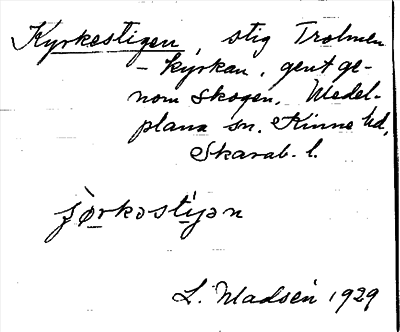 Kyrkestigen, stig Trolmen
- kyrkan, gent ge-
nom skogen. Medel-
plana sn. Kinne hd,
Skarab. l.
L. Madsén 1929